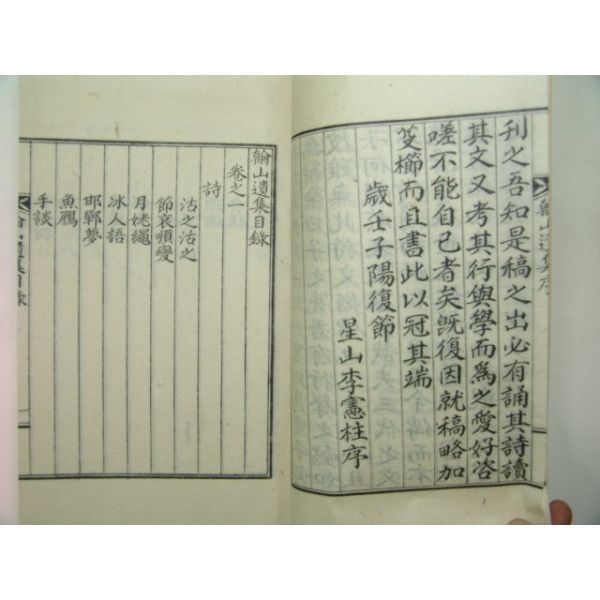 刊之吾知是稿之出必有誦其詩讀
其文又考其行與學而爲之愛好咨
嗟不能自已者矣旣復因就稿略加
筴櫛而且書此以冠其端
歲壬子陽復節
星山李憲柱序
翰山遺集序
翰山遺集目錄
卷之一
詩
沽之沽之
節哀順變
月姥繩
冰人語
邯鄲夢
魚鴈
手談
翰山遺集目錄
一